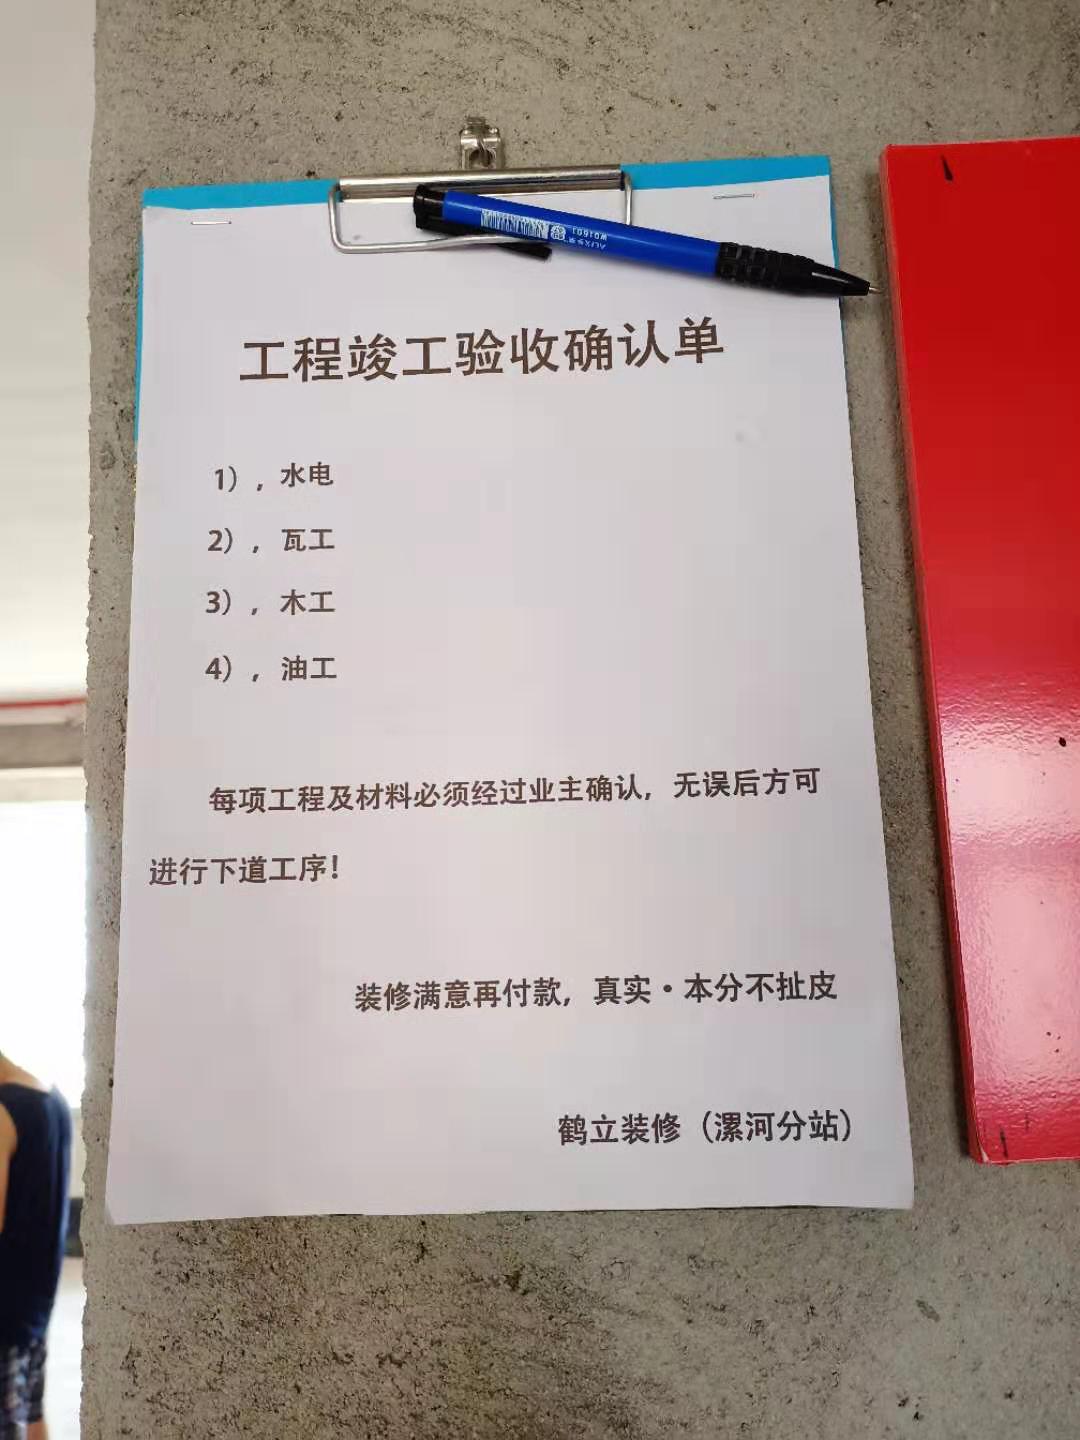 ALIX步来
W01601
工程竣工验收确认单
1），水电
2），瓦工
3），木工
4），油工
每项工程及材料必须经过业主确认，无误后方可
进行下道工序！
装修满意再付款，真实·本分不扯皮
鹤立装修（漯河分站）